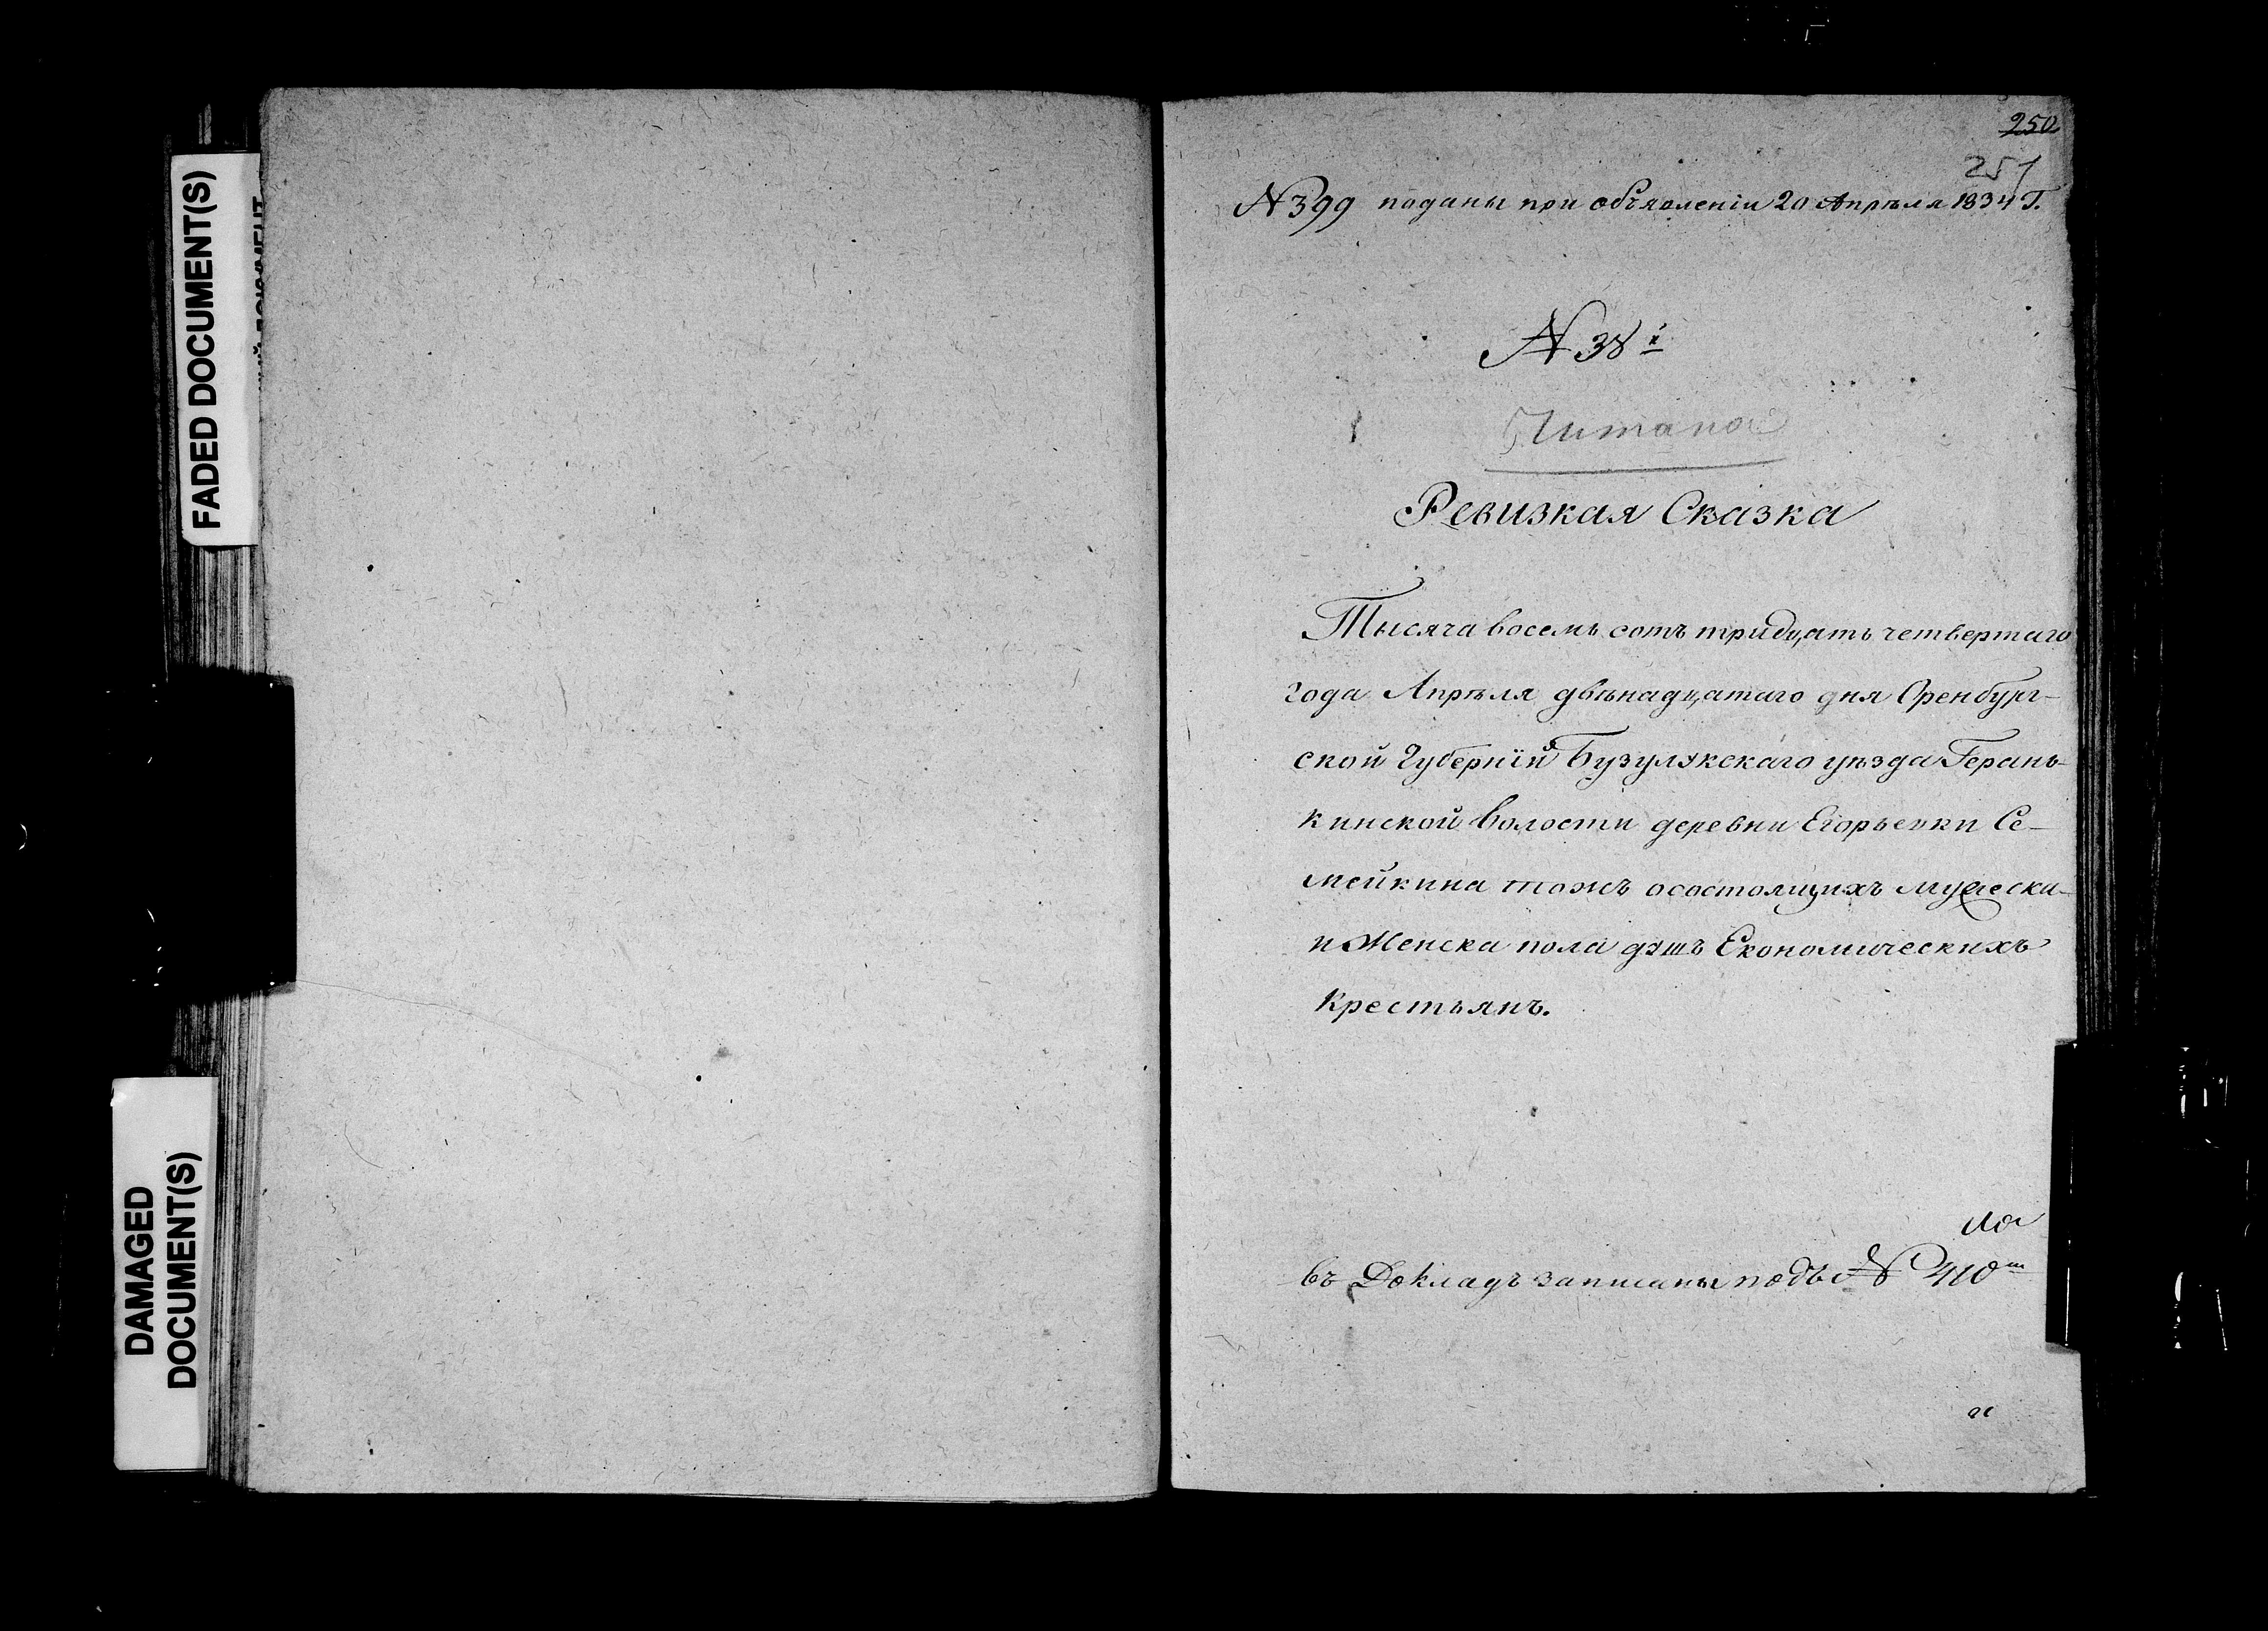 FADED DOCUMENT(S)
DAMAGED
DOCUMENT(S)
250
251
N 399 поданы при объявленіи 20 Апрѣля 1834 Г.
N 38й
Читана
Ревизкая Сказка
Тысяча восемь сотъ тридцать четвертаго
года Апрѣля двѣнадцатаго дня Оренбург-
ской Губерніи Бузулукскаго уѣзда Герань-
кинской волости деревни Егорьевки Се-
мейкина тожъ осостоящихъ мужеска-
и Женска пола душъ Економическихъ
крестьянъ.
въ Докладъ записаны подъ N 410мъ